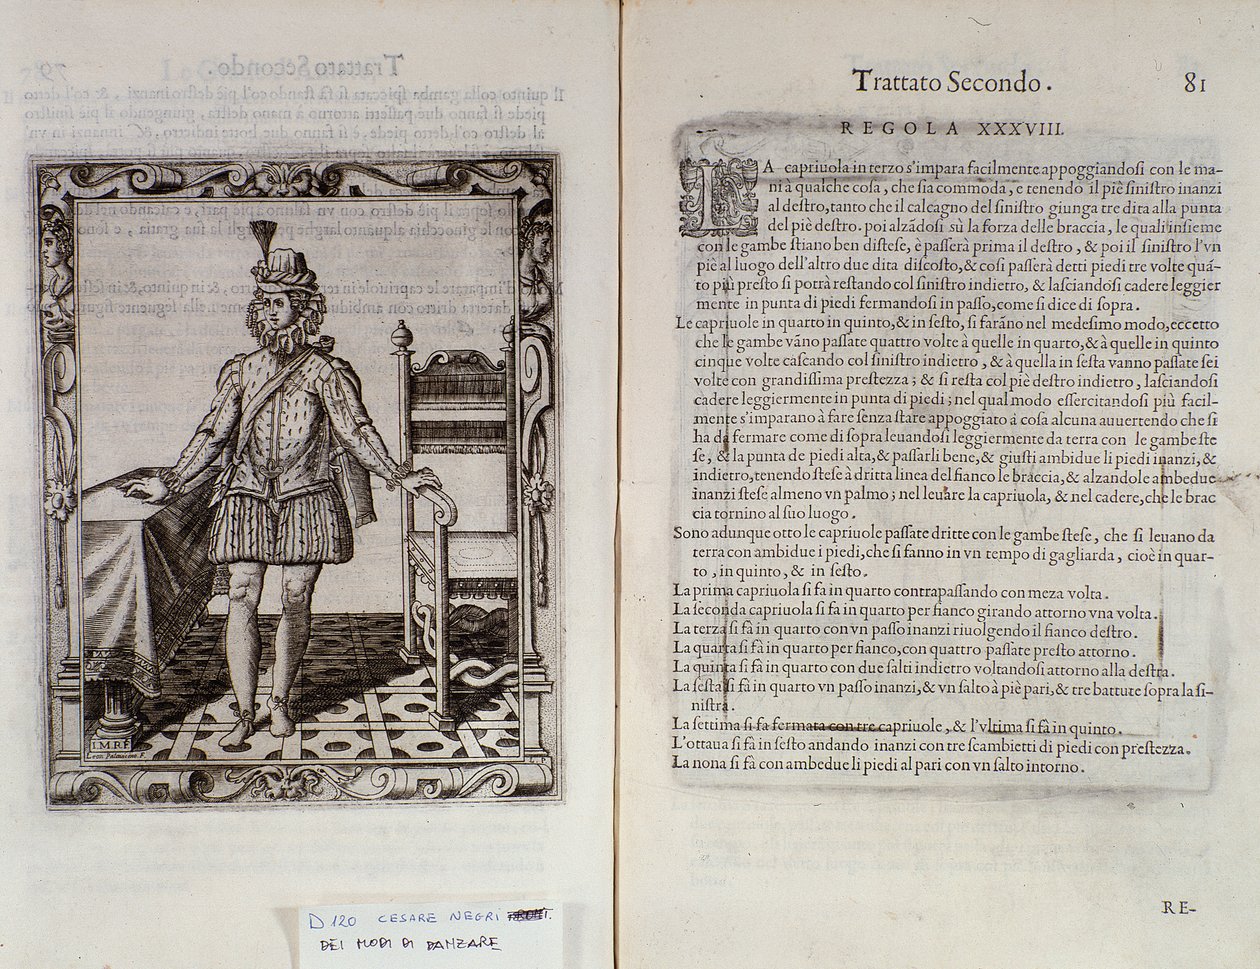 I.M.R.F
D 120 CESARE NEGRI
DEI MODI DI DANZARE
Trattato Secondo. 81
REGOLA XXXVIII.
LA capriuola in terzo s'impara facilmente appoggiandoſi con le ma-
ni à qualche coſa, che ſia commoda, e tenendo il piè ſiniſtro inanzi
al deſtro, tanto che il calcagno del ſiniſtro giunga tre dita alla punta
del piè deſtro. poi alzádoſi sù la forza delle braccia, le quali inſieme
con le gambe ſtiano ben diſteſe, è paſſerà prima il deſtro, & poi il ſiniſtro l'vn
piè al luogo dell'altro due dita diſcoſto, & coſi paſſerà detti piedi tre volte quá-
to più preſto ſi potrà reſtando col ſiniſtro indietro, & laſciandoſi cadere leggier
mente in punta di piedi fermandoſi in paſſo, come ſi dice di ſopra.
Le capriuole in quarto in quinto, & in ſeſto, ſi faráno nel medeſimo modo, eccetto
che le gambe váno paſſate quattro volte à quelle in quarto, & à quelle in quinto
cinque volte caſcando col ſiniſtro indietro, & à quella in ſeſta vanno paſſate ſei
volte con grandiſſima preſtezza; & ſi reſta col piè deſtro indietro, laſciandoſi
cadere leggiermente in punta di piedi; nel qual modo eſſercitandoſi più facil-
mente s'imparano à fare ſenza ſtare appoggiato à coſa alcuna auuertendo che ſi
ha da fermare come di ſopra leuandoſi leggiermente da terra con le gambe ſte
ſe, & la punta de piedi alta, & paſſarli bene, & giuſti ambidue li piedi inanzi, &
indietro, tenendo ſteſe à dritta linea del fianco le braccia, & alzandole ambedue
inanzi ſteſe almeno vn palmo; nel leuare la capriuola, & nel cadere, che le brac
cia tornino al ſuo luogo.
Sono adunque otto le capriuole paſſate dritte con le gambe ſteſe, che ſi leuano da
terra con ambidue i piedi, che ſi fanno in vn tempo di gagliarda, cioè in quar-
to, in quinto, & in ſeſto.
La prima capriuola ſi fa in quarto contrapaſſando con meza volta.
La ſeconda capriuola ſi fa in quarto per fianco girando attorno vna volta.
La terza ſi fà in quarto con vn paſſo inanzi riuolgendo il fianco deſtro.
La quarta ſi fà in quarto per fianco, con quattro paſſate preſto attorno.
La quinta ſi fà in quarto con due ſalti indietro voltandoſi attorno alla deſtra.
La ſeſta ſi fà in quarto vn paſſo inanzi, & vn ſalto à piè pari, & tre battute ſopra la ſi-
niſtra.
La ſettima ſi fa fermata con tre capriuole, & l'vltima ſi fà in quinto.
L'ottaua ſi fà in ſeſto andando inanzi con tre ſcambietti di piedi con preſtezza.
La nona ſi fà con ambedue li piedi al pari con vn ſalto intorno.
RE-